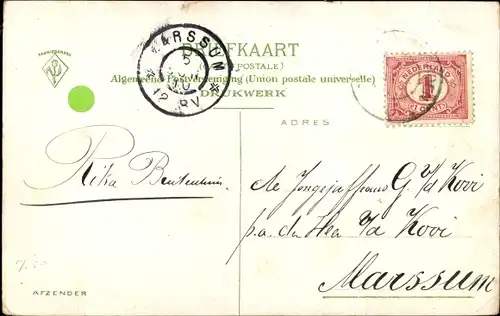 FABRIEKSMERK
BRIEFKAART
(CARTE POSTALE)
Algemeene Postvereeniging (Union postale universelle)
DRUKWERK
MARSSUM
5
10
12
NEDERLAND
1
CENT
ADRES
Rika
de G. v/d Kooi
p.a. den Heer v/d Kooi
Marssum
7.50
AFZENDER